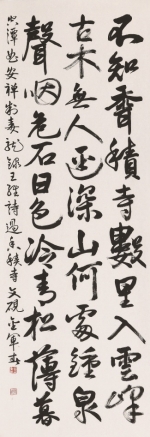 不知香積寺數里入雲峰
古木無人迳深山何處鐘泉
聲咽危石日色冷青松薄暮
空潭曲安禪制毒龍錄王維詩過香積寺文硯